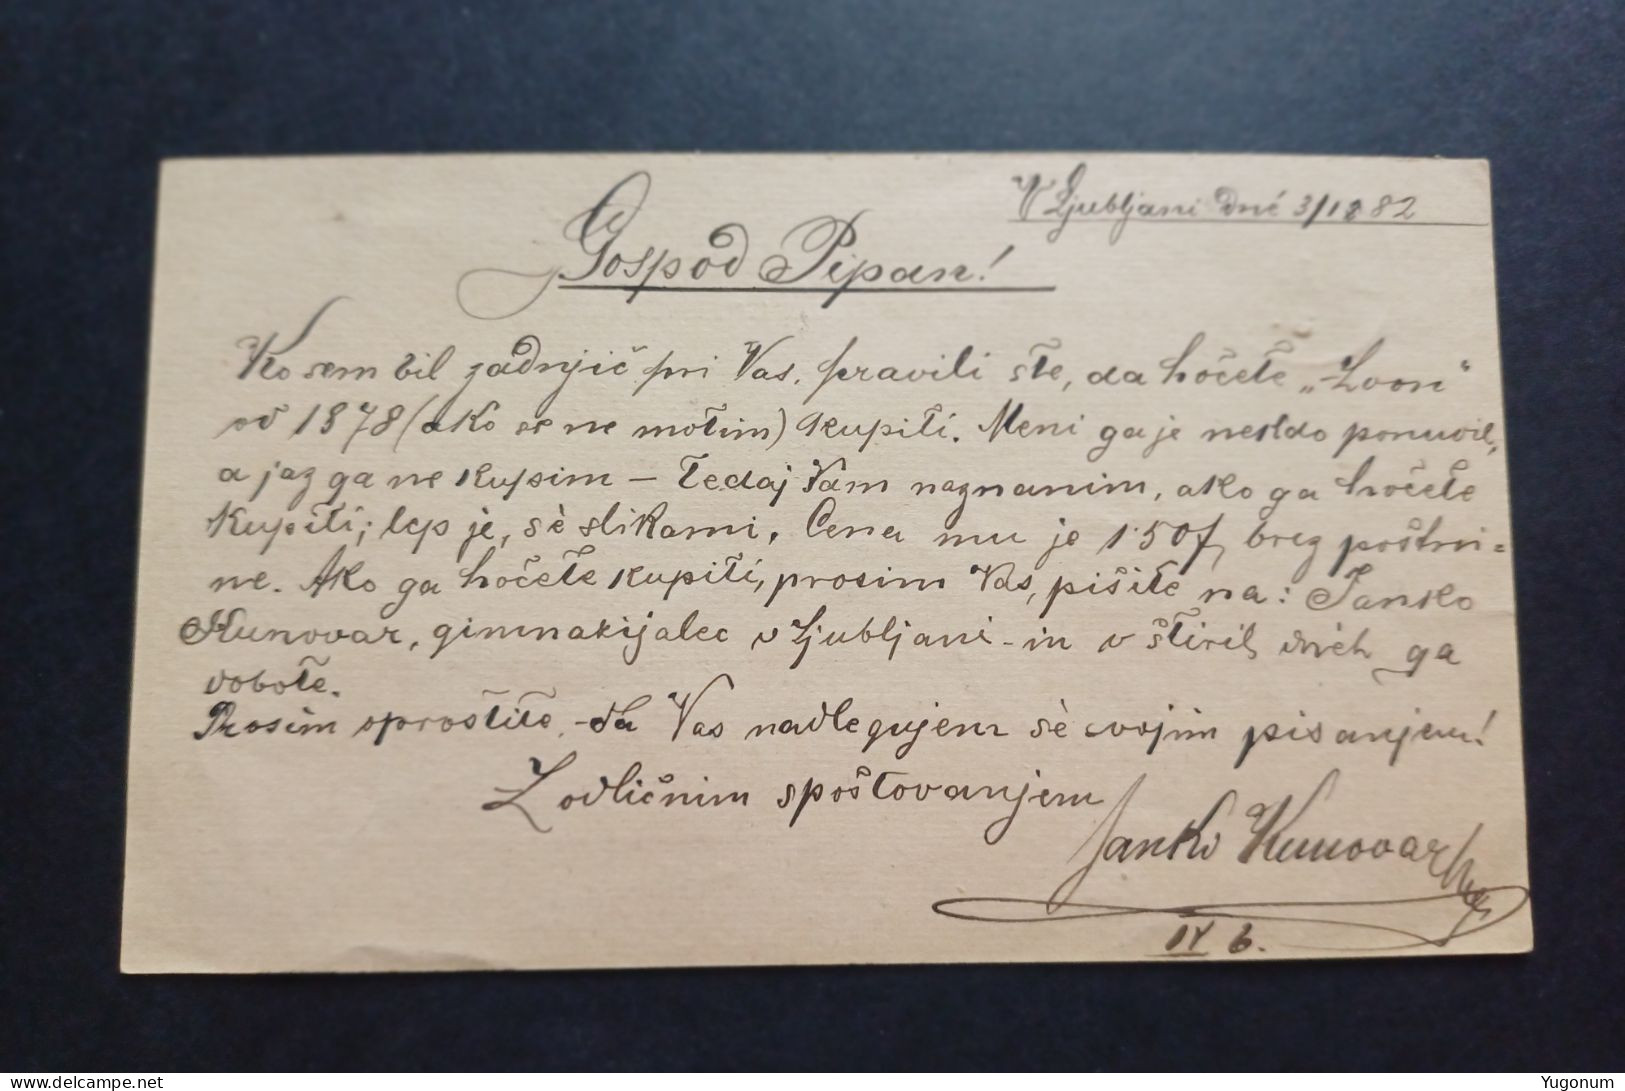 V Ljubljani dné 3/1882
Gospod Pipan!
Ko sem bil zadnjič pri Vas, pravili ste, da hočete „Zvon"
od 1878 (ako se ne motim) kupiti. Meni ga je nekdo ponudil,
a jaz ga ne kupim – tedaj Vam naznanim, ako ga hočete
kupiti; lep je, sè slikami. Cena mu je 1·50 f, brez poštni=
ne. Ako ga hočete kupiti, prosim Vas, pišite na: Janko
Kunovar, gimnazijalec v Ljubljani – in v štirih dnéh ga
dobote.
Prosim oprostite, da Vas nadlegujem sè svojim pisanjem!
Z odličnim spoštovanjem
Janko Kunovar
IV b.
www.delcampe.net
Yugonum